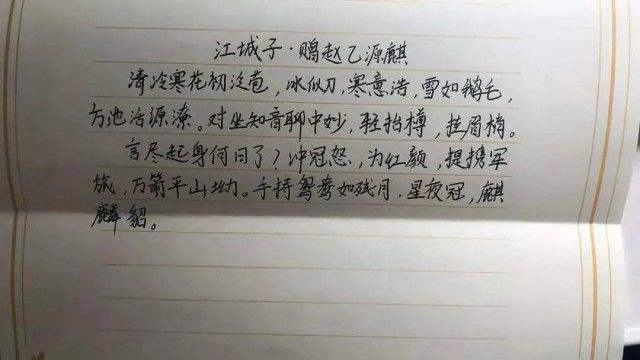 江城子·鹍赵乙源麒
清冷寒花初泛苞，冰似刀，寒意浩，雪如鹅毛，
方池治源潦。对坐知音聊中妙，轻抬樽，挂眉梢。
言尽起身何日了？冲冠怒，为红颜，提携军
旅，万箭平山坳。手持鸳鸯如残月，星夜冠，麒
麟貂。